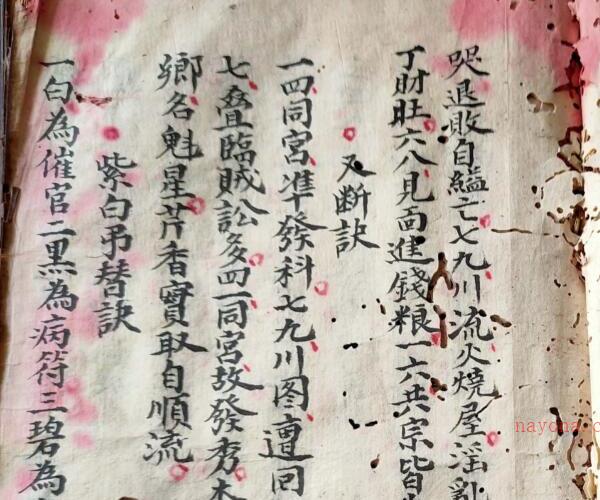 哭退敗自縊亡七九川流火燒屋淫亂
丁財旺六八見面進錢粮一六共宗皆
又断訣
一四同宮準發科七九川图遭回
七叠臨賊訟多四一同宮故發秀
鄉名魁星芹香實取自順流
紫白吊替訣
一白為催官二黑為病符三碧為
nayona.c